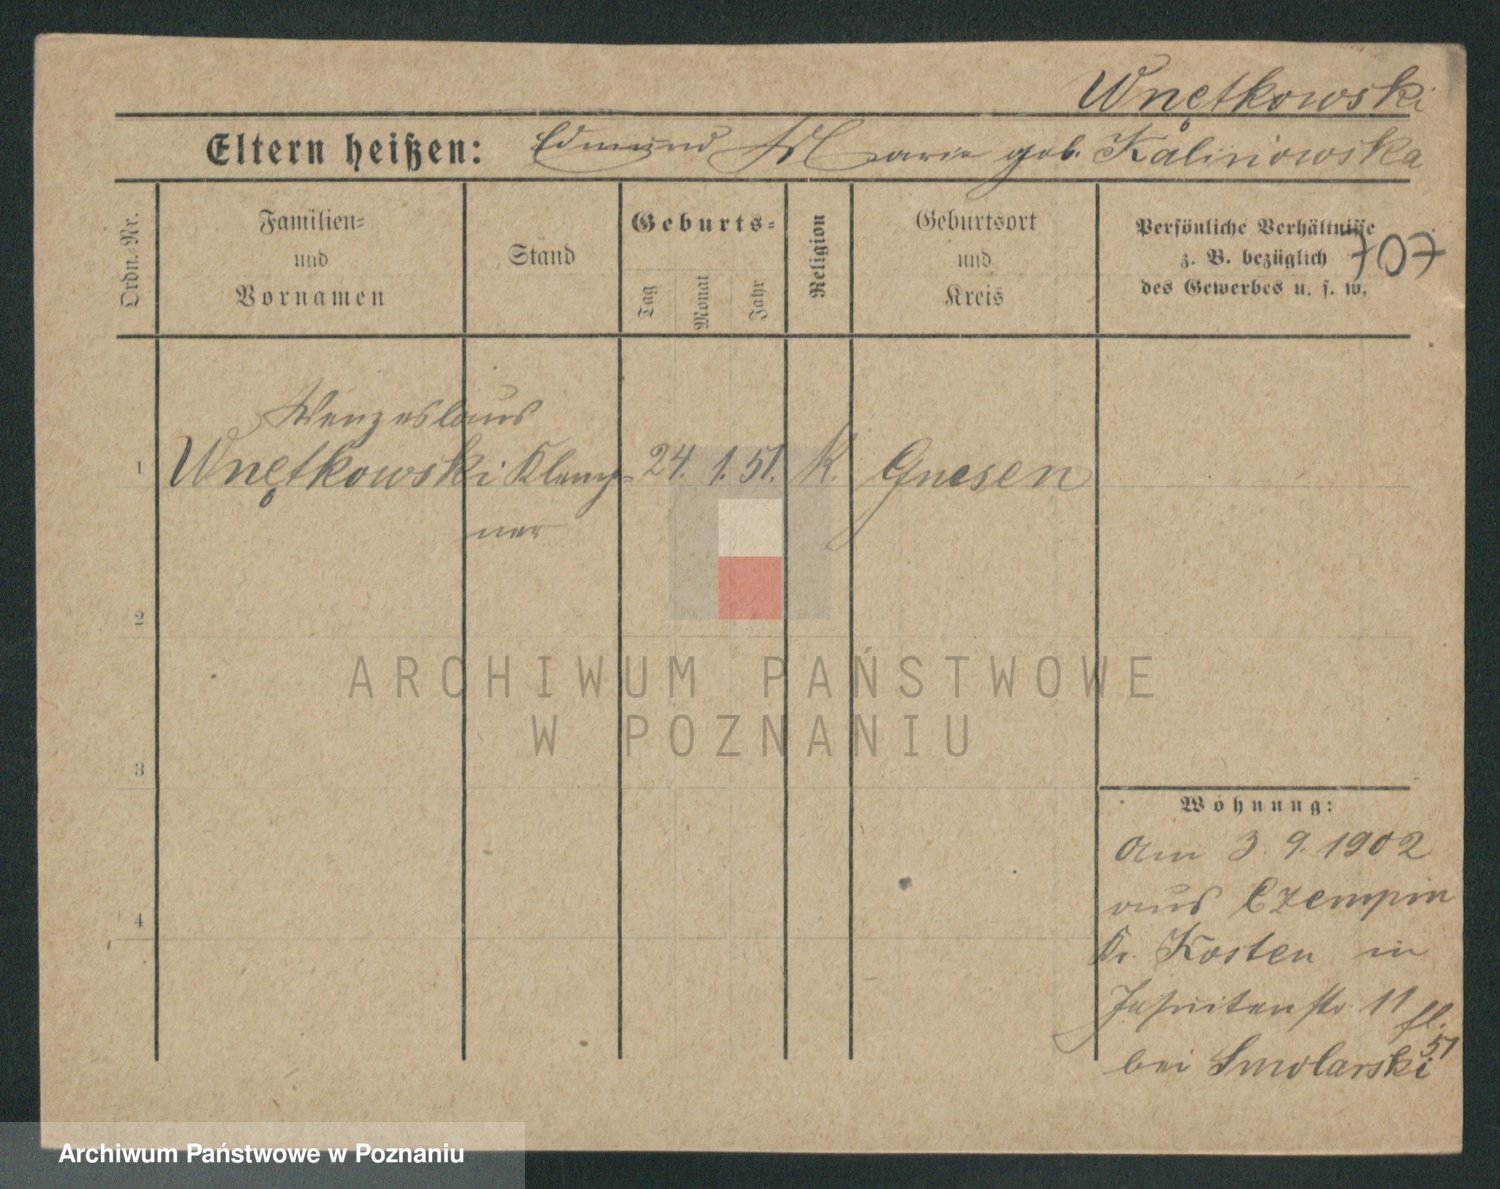 Wnętkowski
Eltern heißen: Edmund Marie geb. Kalinowska
Ordn.-Nr.
Familien=
und
Vornamen
Stand
Geburts=
Tag
Monat
Jahr
Religion
Geburtsort
und
Kreis
Persönliche Verhältnisse
z. B. bezüglich
des Gewerbes u. s. w.
707
Wenzeslaus
1 Wnętkowski Klemp= 24. 1. 51. K. Gnesen
ner
2
3
4
Wohnung:
Am 3. 9. 1902
aus Czempin
Kr. Kosten in
Jesuitenstr. 11
51
bei Smolarski
ARCHIWUM PAŃSTWOWE
W POZNANIU
Archiwum Państwowe w Poznaniu